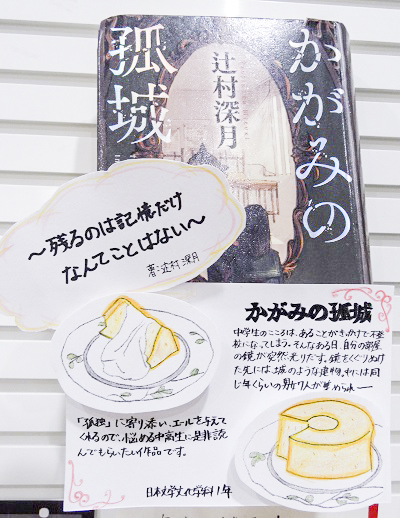 かがみの
孤城
辻村深月
～残るのは記憶だけ
なんてことはない～
著:辻村深月
かがみの孤城
中学生のこころは、あることがきっかけで不登
校になってしまう。そんなある日、自分の部屋
の鏡が突然光りだす。鏡をくぐりぬけ
た先には、城のような建物。中には同
じ年くらいの男女7人が集められ―
「孤独」に寄り添い、エールを与えて
くれるので、悩める中高生に是非読
んでもらいたい作品です。
日本文学文化学科1年